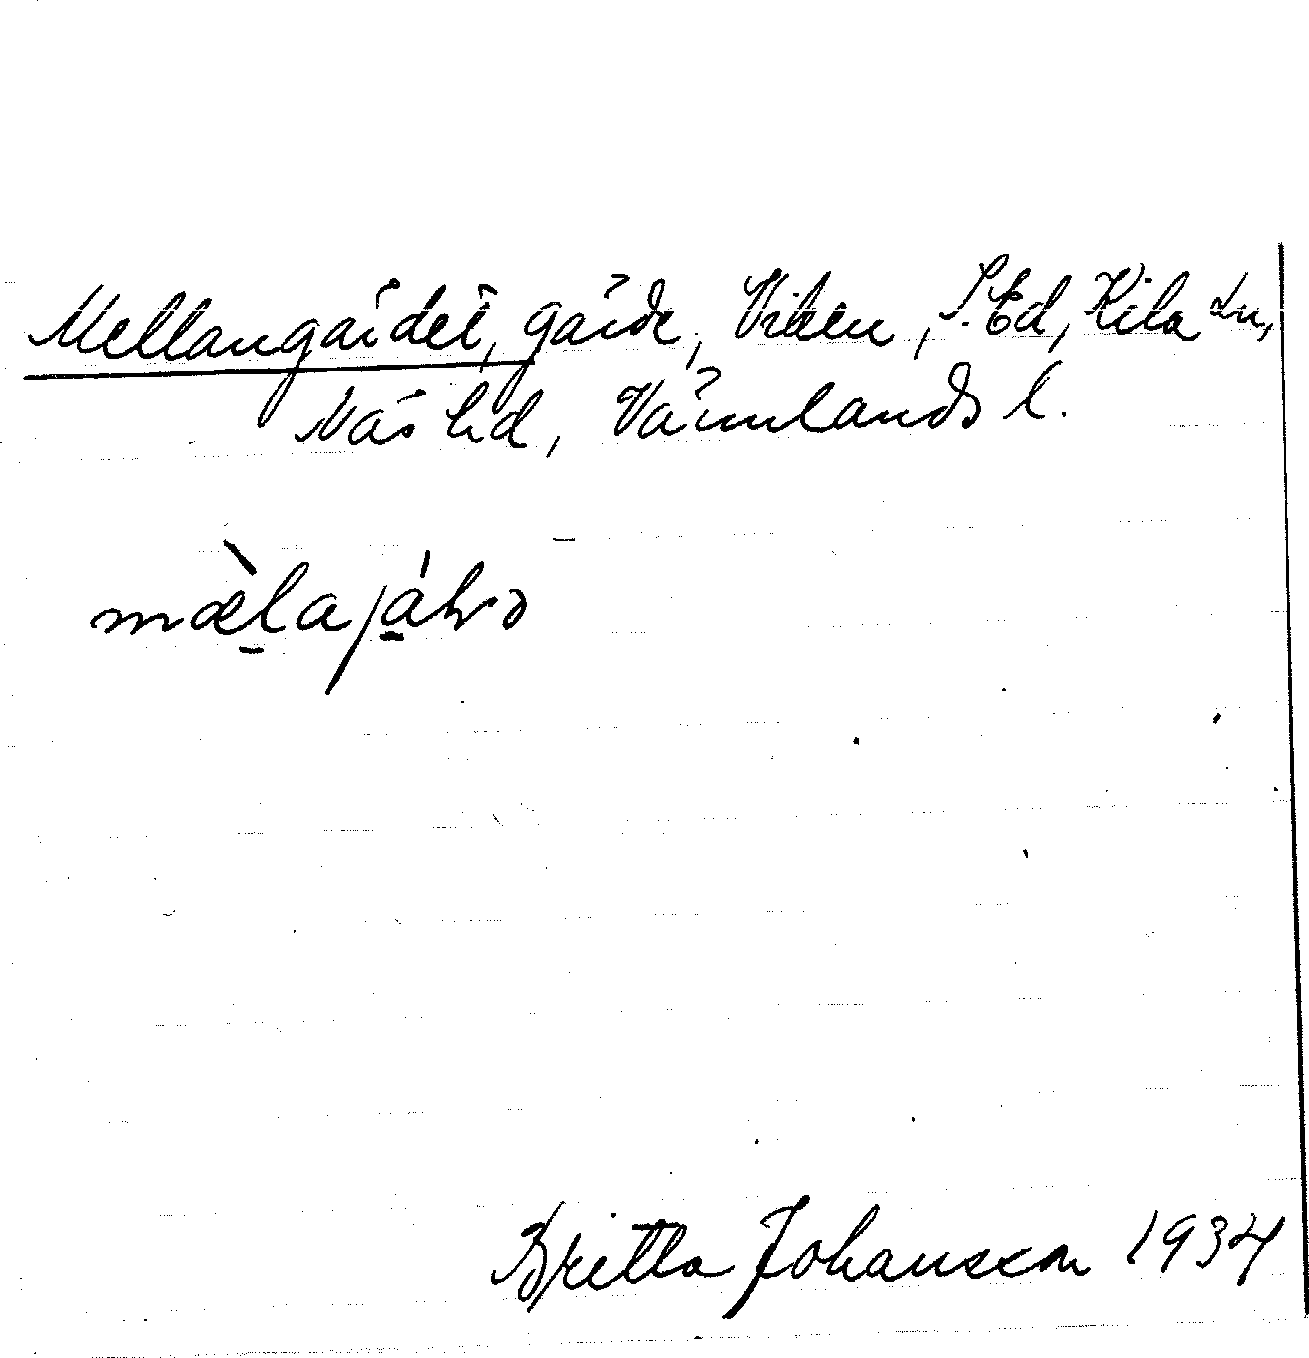 Mellangärdet, gärde, Viken, S. Ed, Kila sn,
Näs hd, Värmlands l.
mæ̀lajáḷə
Britta Johansson 1934